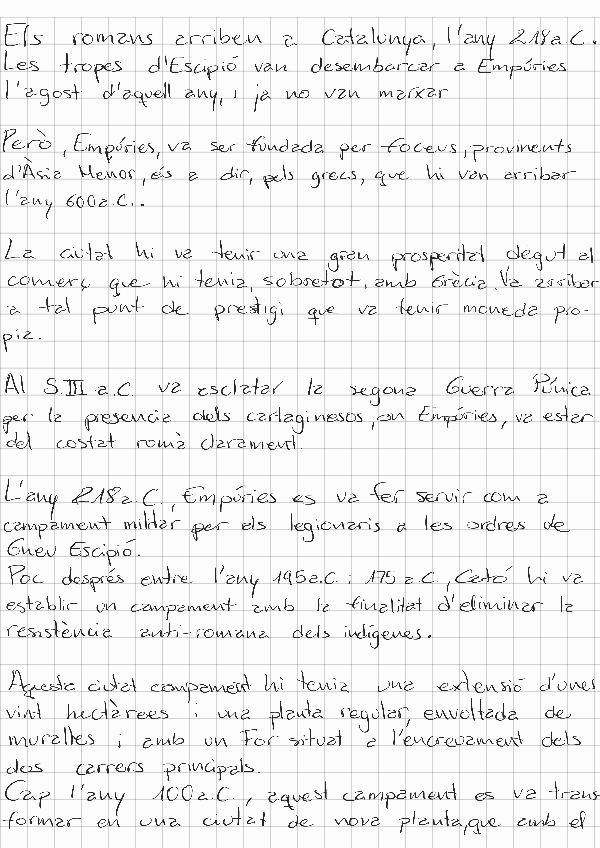 Els romans arriben a Catalunya, l'any 218 a.C.
Les tropes d'Escipió van desembarcar a Empúries
l'agost d'aquell any, i ja no van marxar
Però, Empúries, va ser fundada per foceus, provinents
d'Àsia Menor, és a dir, pels grecs, que hi van arribar
l'any 600 a.C..
La ciutat hi va tenir una gran prosperitat degut al
comerç que hi tenia, sobretot, amb Grècia. Va arribar
a tal punt de prestigi que va tenir moneda prò-
pia.
Al S.III a.C. va esclatar la segona Guerra Púnica
per la presencia dels cartaginesos, on Empúries, va estar
del costat romà clarament.
L'any 218 a.C., Empúries es va fer servir com a
campament militar per els legionaris a les ordres de
Gneu Escipió.
Poc després entre l'any 195 a.C. i 175 a.C., Cató hi va
establir un campament amb la finalitat d'eliminar la
resistència anti-romana dels indígenes.
Aquesta ciutat campament hi tenia una extensió d'unes
vint hectàrees i una planta regular, envoltada de
muralles i amb un For situat a l'encreuament dels
dos carrers principals.
Cap l'any 100 a.C., aquest campament es va trans
formar en una ciutat de nova planta, que amb el